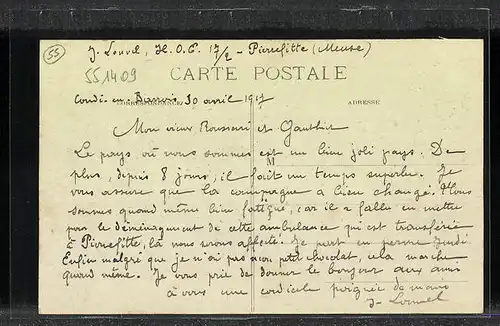 55
J. Louvel, H.O.E. 17/2 - Pierrefitte (Meuse)
551409
CARTE POSTALE
CORRESPONDANCE
ADRESSE
Condé-en-Barrois, 30 avril 1917
Mon vieux et
Le pays où nous sommes est un bien joli pays. De
plus, depuis 8 jours, il fait un temps superbe. Je
vous assure que la campagne a bien changé. Nous
sommes quand même bien fatigué, car il a fallu en mettre
pour le déménagement de cette ambulance qui est transférée
à Pierrefitte, là nous serons affectés. Je part en perm Jeudi.
Enfin malgré que je n'ai pas mon petit chocolat, cela marche
quand même. Je vous prie de donner le bonjour aux amis
à vous une cordiale poignée de mains
J. Louvel